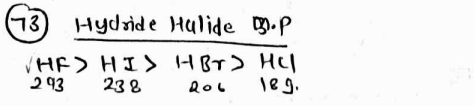 (73) Hydride Halide B.P
√HF > HI > HBr > HCl
293 238 206 189.